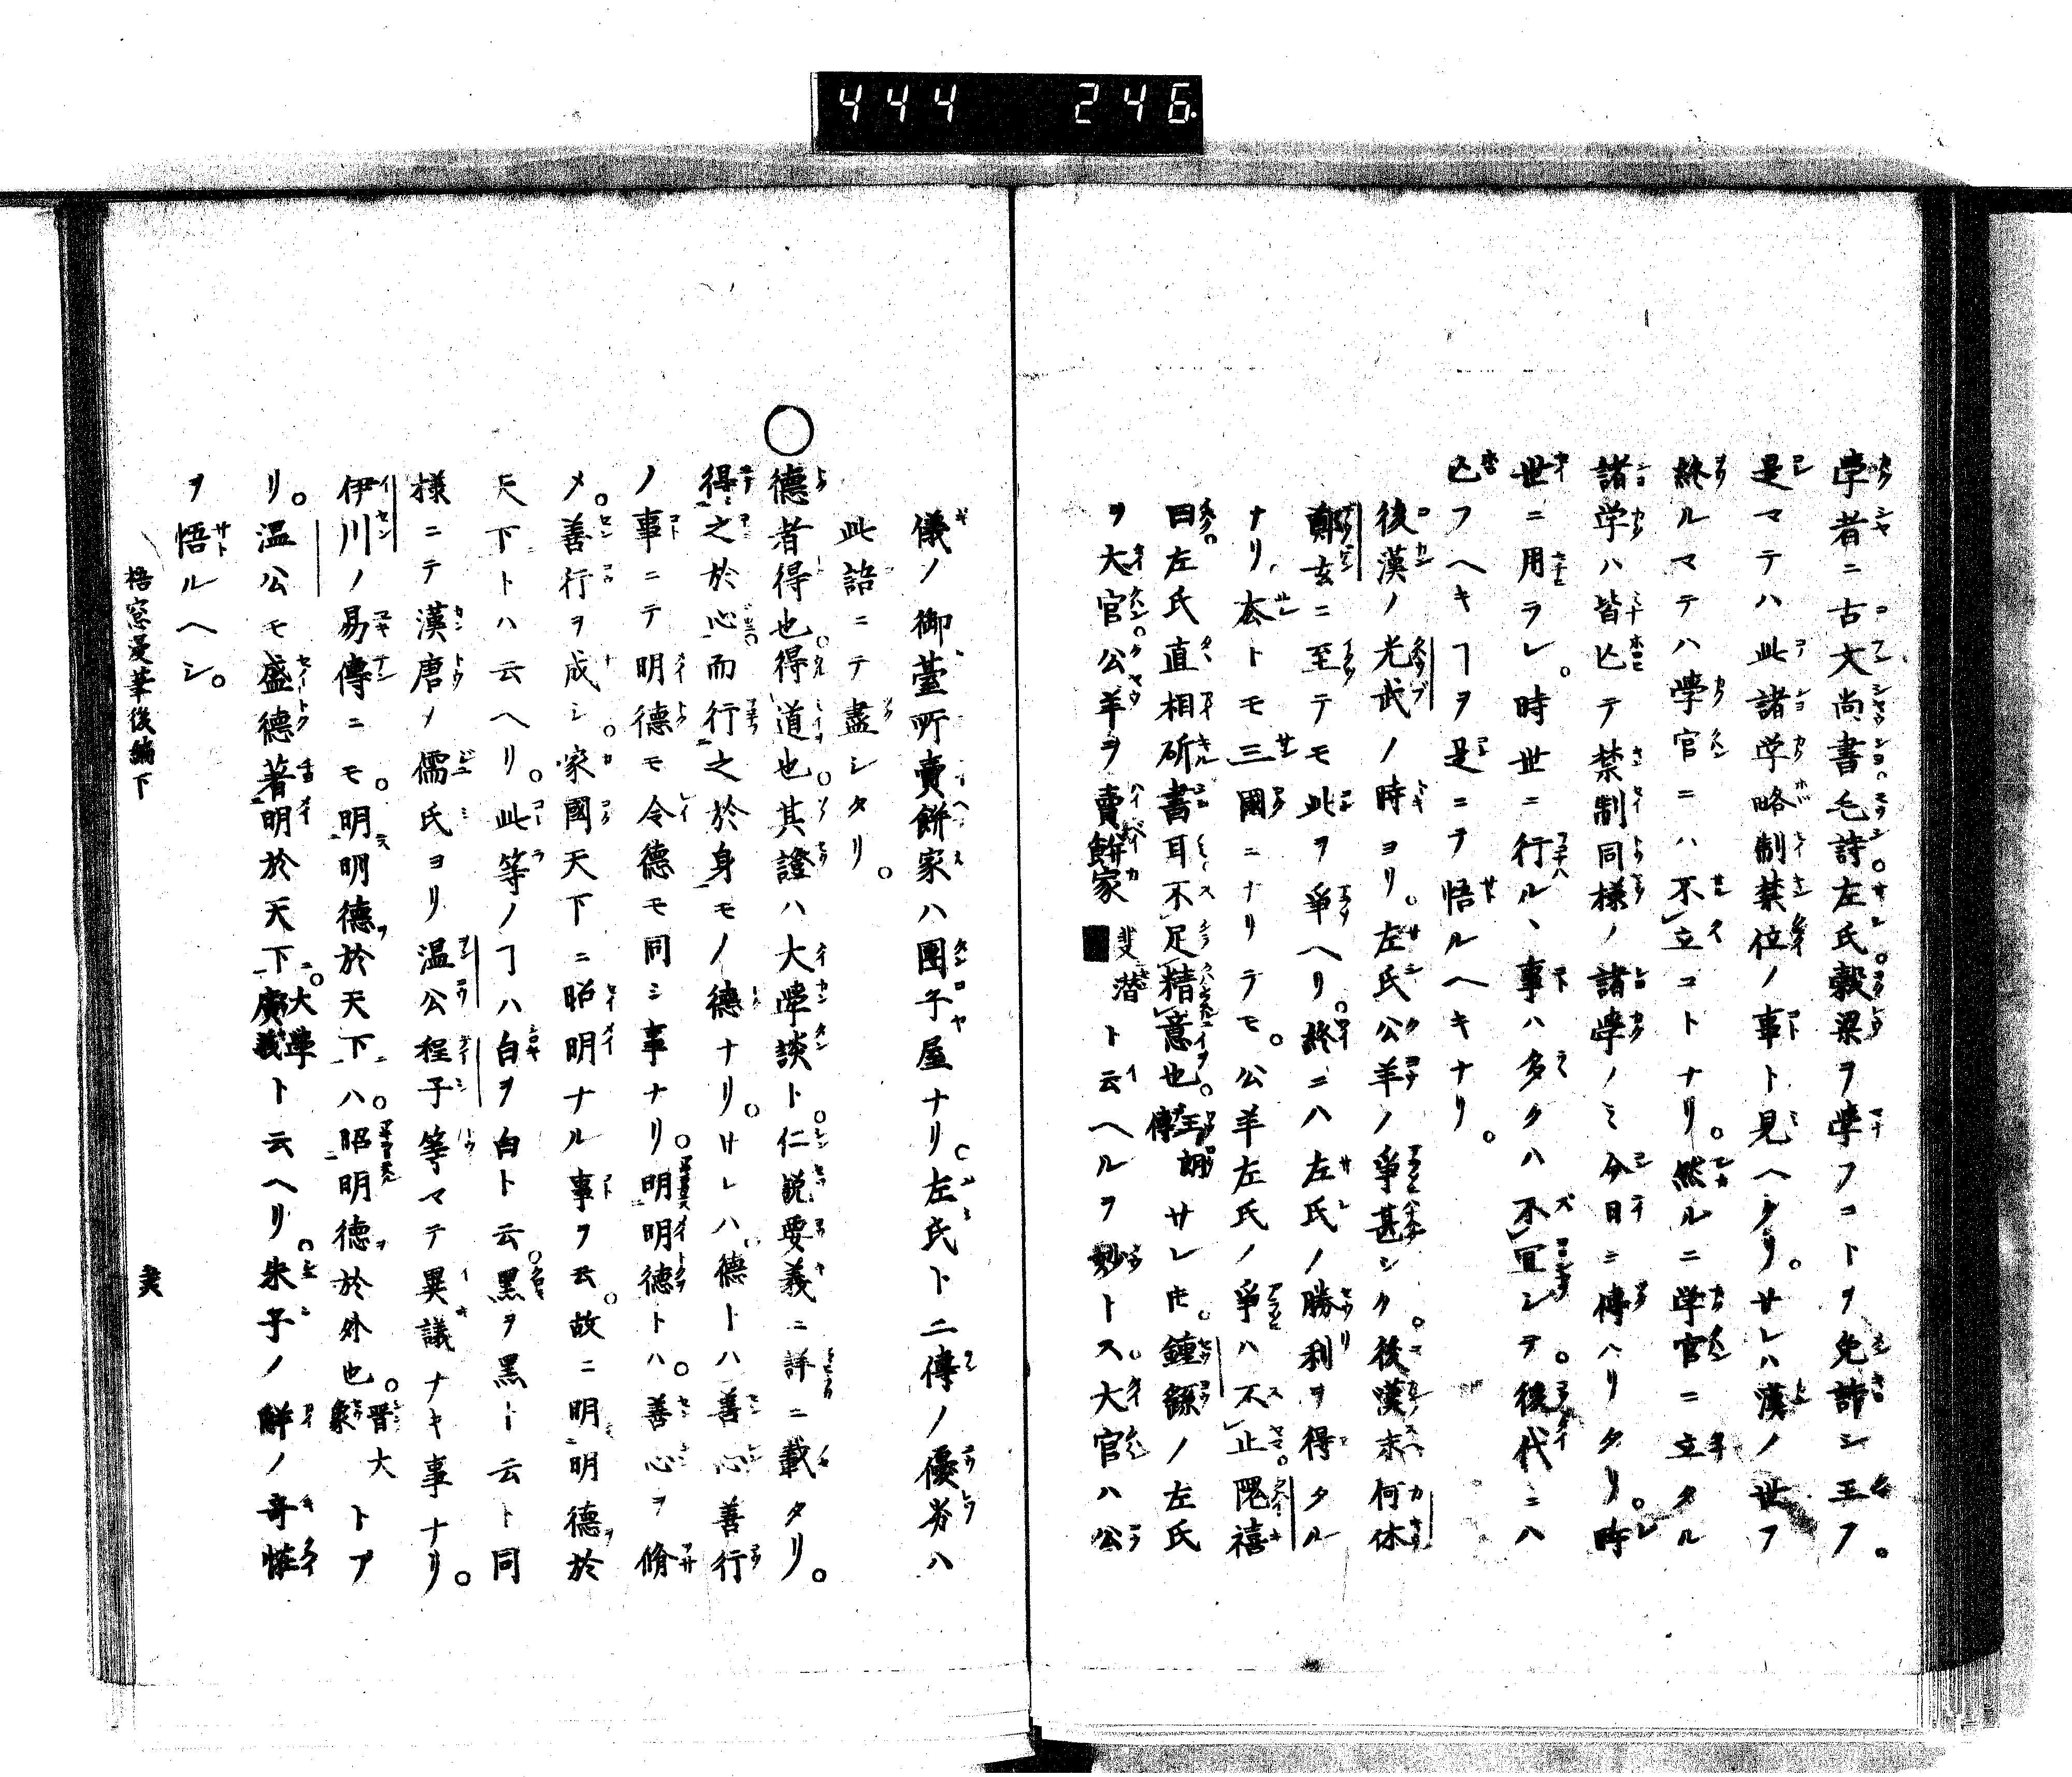 444 246.
学者ニ古文尚書毛詩左氏穀梁ヲ學フコトヲ免許シ玉フ。
是マテハ此諸学略制禁位ノ事ト見ヘタリ。サレハ漢ノ世ヲ
終ルマテハ學官ニハ不立コトナリ。然ルニ学官ニ立タル
諸学ハ皆亡テ禁制同様ノ諸學ノミ今日ニ傳ハリタリ。時
世ニ用ラレ。時世ニ行ルヽ事ハ多クハ不宜シヲ。後代ニハ
亡フヘキヿヲ是ニテ悟ルヘキナリ。
後漢ノ光武ノ時ヨリ。左氏公羊ノ爭甚シク。後漢末何休
鄭玄ニ至テモ此ヲ爭ヘリ。終ニハ左氏ノ勝利ヲ得タル
ナリ。然トモ三國ニナリテモ。公羊左氏ノ爭ハ不止。隗禧
曰。左氏直相斫書耳不足精意也。王朗傳サレ𪜈。鍾繇ノ左氏
ヲ大官。公羊ヲ賣餅家ト云ヘルヲ妙トス。大官ハ公
儀ノ御臺所賣餅家ハ團子屋ナリ。左氏ト二傳ノ優劣ハ
此語ニテ盡シタリ。
○德者得也。得道也。其證ハ大學談ト。仁説要義ニ詳ニ載タリ。
得之於心而行之於身モノ德ナリ。サレハ德トハ善心善行
ノ事ニテ明德モ令德モ同シ事ナリ。明明德トハ。善心ヲ脩
メ。善行ヲ成シ。家國天下ニ昭明ナル事ヲ云。故ニ明明德於
天下トハ云ヘリ。此等ノヿハ白ヲ白ト云。黑ヲ黑ト云ト同
様ニテ漢唐ノ儒氏ヨリ温公程子等マテ異議ナキ事ナリ。
伊川ノ易傳ニモ。明明德於天下ハ。昭明德於外也。晋大象トア
リ。温公モ盛德著明於天下。大學廣義ト云ヘリ。朱子ノ解ノ奇怪
ヲ悟ルヘシ。
梧窓漫筆後編下